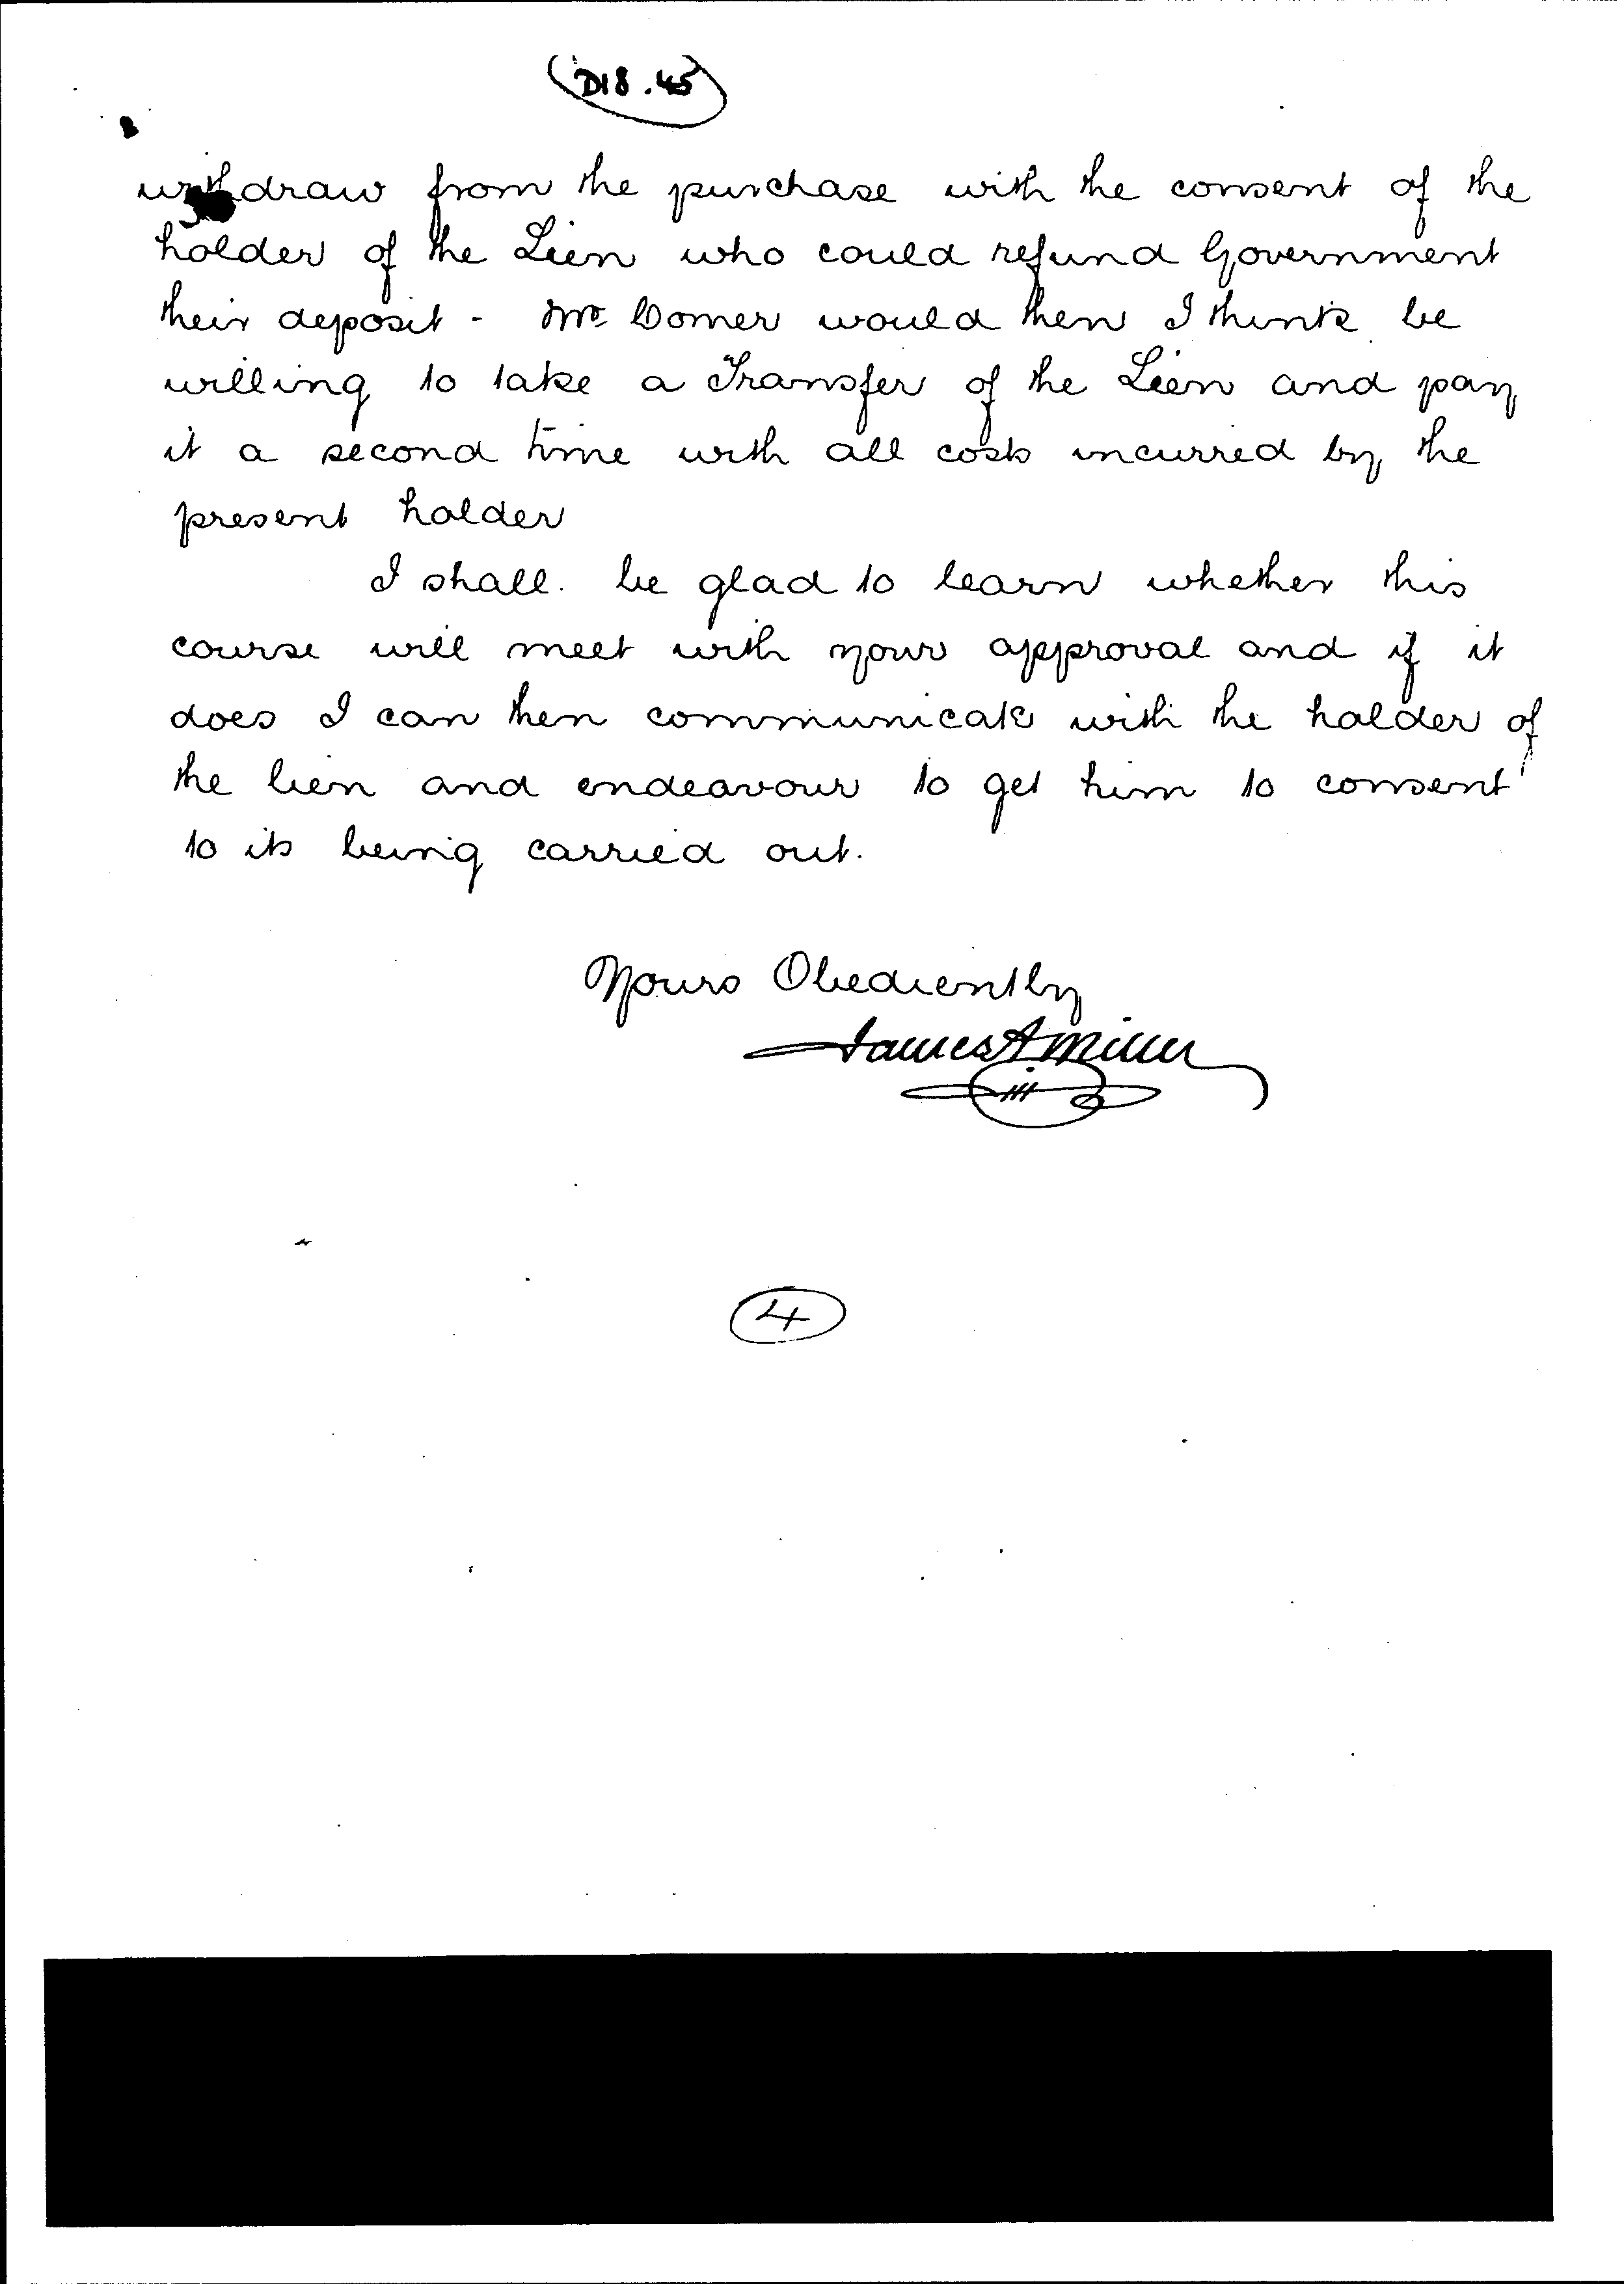 D18.45
withdraw from the purchase with the consent of the
holder of the Lien who could refund Government
their deposit - Mr Comer would then I think be
willing to take a Transfer of the Lien and pay
it a second time with all costs incurred by the
present holder
I shall. be glad to learn whether this
course will meet with your approval and if it
does I can then communicate with the holder of
the lien and endeavour to get him to consent
to its being carried out.
Yours Obediently
James A Miller
4